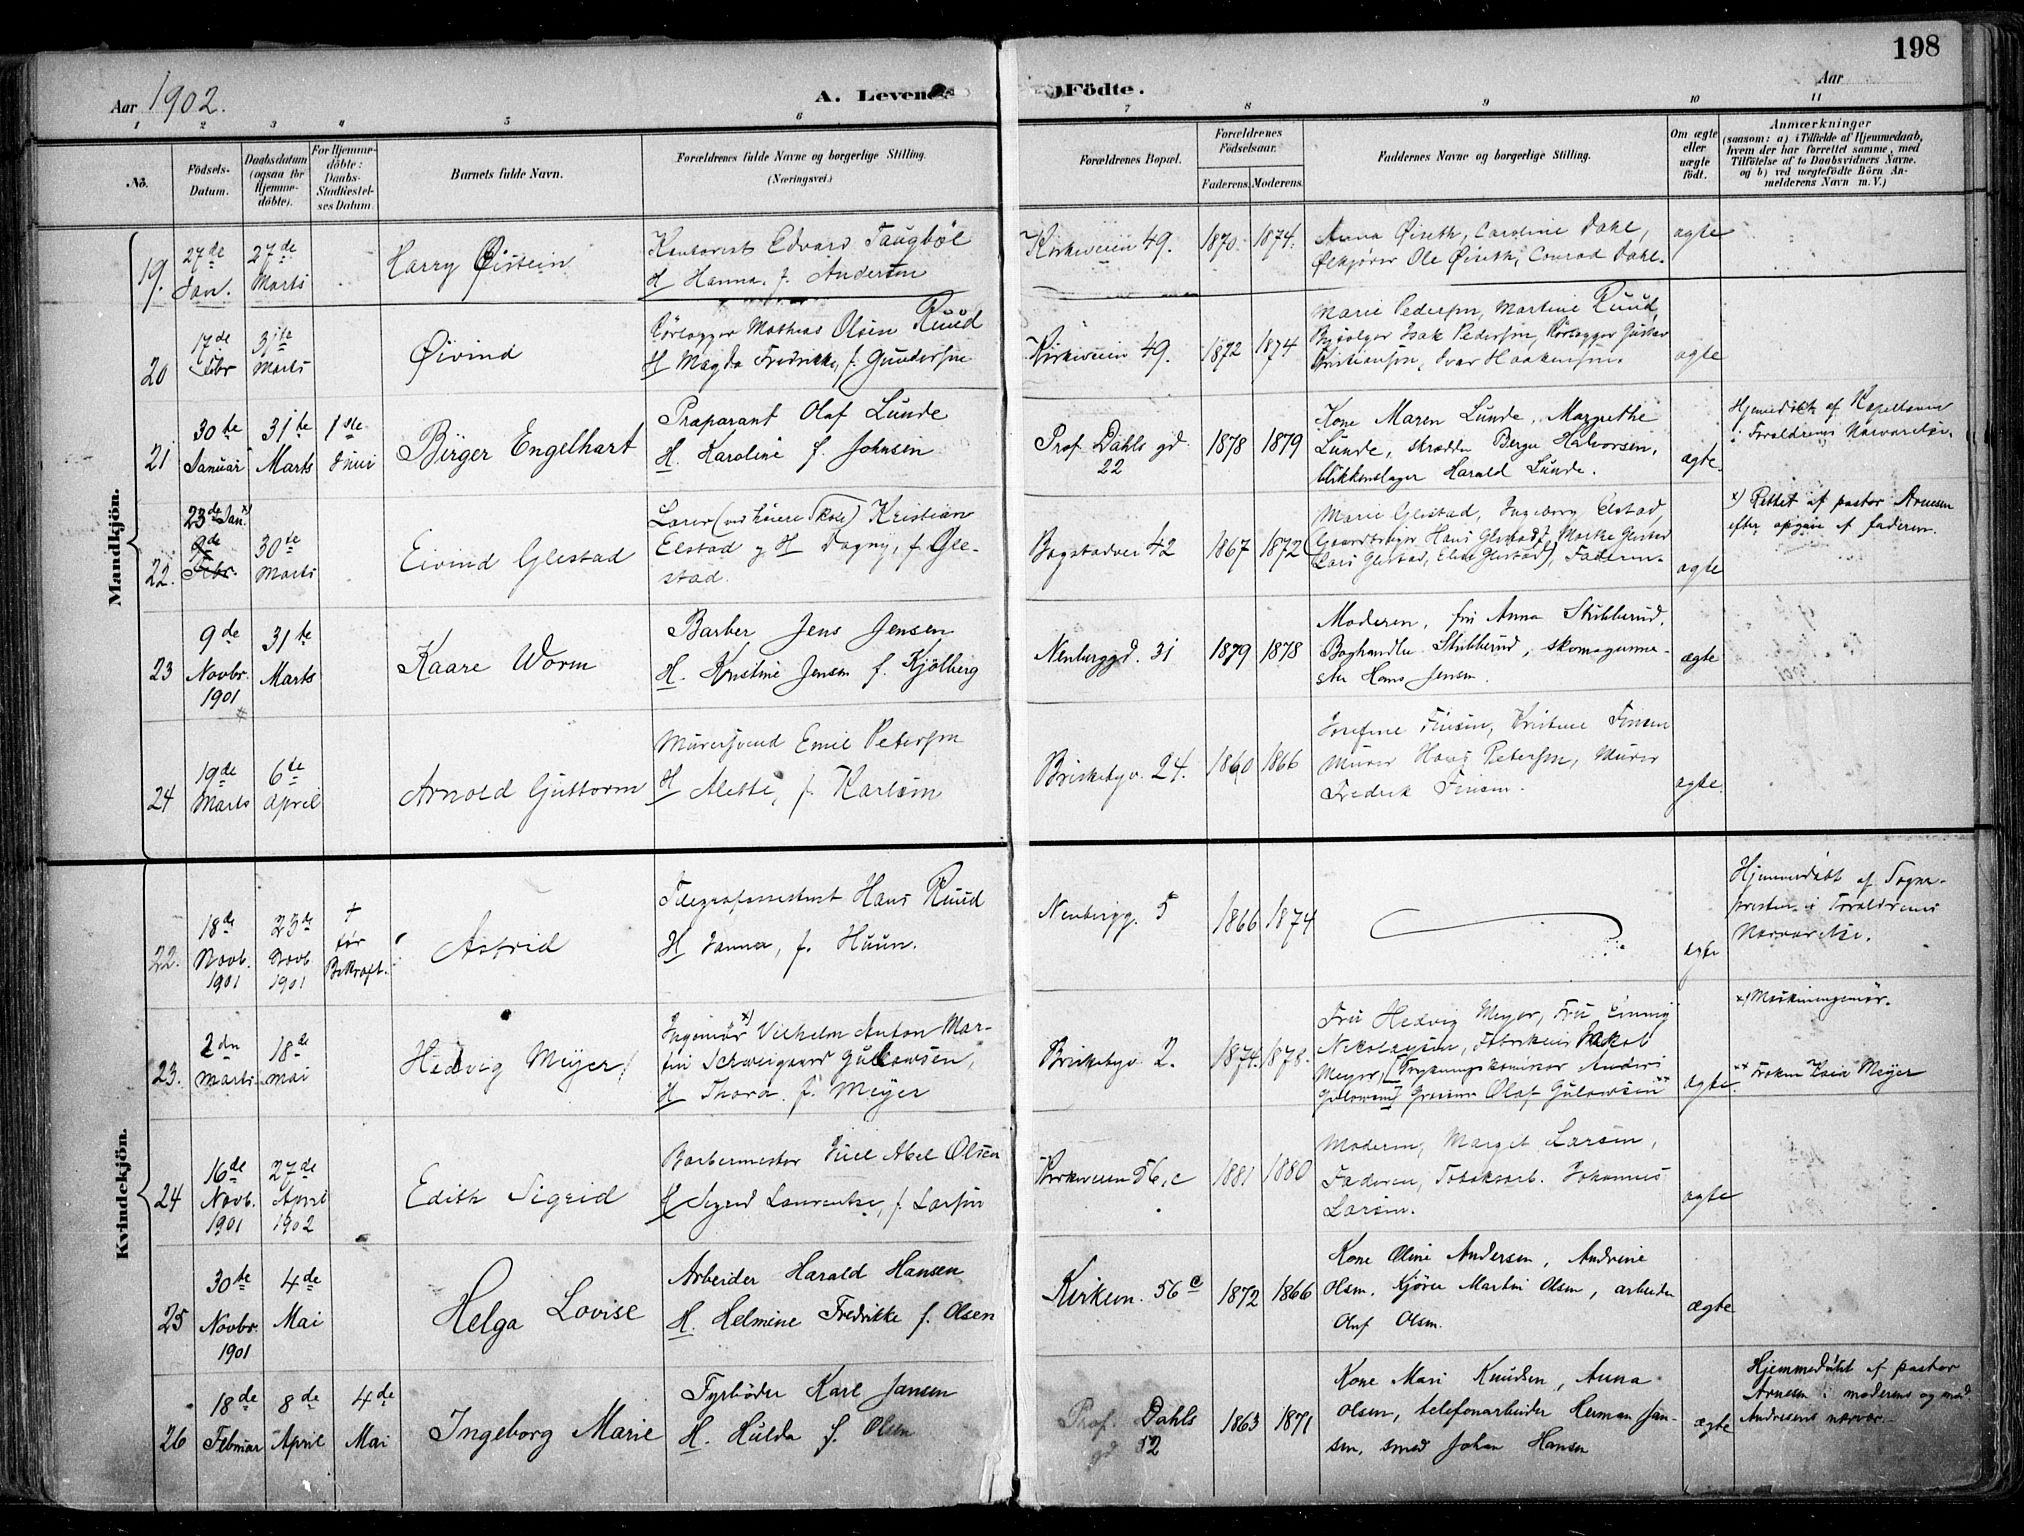 198
Aar 1902.
A. Levende
Födte.
Aar
1 2 3 4 5 6 7 8 9 10 11
No.
Födsels-Datum.
Daabsdatum (ogsaa for Hjemmedöbte).
For Hjemmedöbte: Daabs-Stadfæstelses Datum.
Barnets fulde Navn.
Forældrenes fulde Navne og borgerlige Stilling.
(Næringsvei.)
Forældrenes Bopæl.
Forældrenes Födselsaar.
Faderens. Moderens.
Faddernes Navne og borgerlige Stilling.
Om ægte eller uægte födt.
Anmærkninger
(saasom: a) i Tilfælde af Hjemmedaab, hvem der har forrettet samme, med Tilföielse af to Daabsvidners Navne. og b) ved uægtefödte Börn Anmelderens Navn m. V.)
Mandkjön.
19. 27de Jan. 27de Marts
Harry Øistein
Kontorist Edvard Taugböl
H Hanna, f. Andersen
Kirkeveien 49. 1870. 1874.
Anna Øiseth, Caroline Dahl,
Ølkjører Ole Øiseth, Conrad Dahl.
ægte
20 17de Febr 31te Marts
Øivind
Rörlægger Mathias Olsen Ruud
H Magda Fredrikke, f. Gundersen
Kirkeveien 49. 1872 1874
Marie Pedersen, Martine Ruud,
Isak Pedersen, Rörlægger Gustav
Kristiansen, Ivar Haakensen.
ægte
21 30te Januar 31te Marts 1ste Juni
Birger Engelhart
Præparant Olaf Lunde
H. Karoline f. Johnsen
Prof. Dahls gd 22 1878 1879
Kone Maren Lunde, Margrethe
Lunde, skrædder Berge Halvorsen,
blikkenslager Harald Lunde.
ægte.
Hjemmedöbt af Kapellanen
i Forældrenes Nærværelse.
22. 23de Jan. x) 9de Febr. 30te Marts
Eivind Glestad
Lærer (ved höiere Skole) Kristian
Elstad og H Dagny, f. Gle-
stad.
Bogstadvei 42 1867 1872
Marie Glestad, Ingeborg Elstad,
Gaardbruger Hans Glestad, Marthe Glestad
Lars Glestad, Elise Glestad), Faderen.
ægte
x) Rettet af pastor Arnesen
efter opgave af faderen.
23 9de Novbr. 1901 31te Marts
Kaare Worm
Barber Jens Jensen
H. Kristine Jensen f. Kjölberg
Neuberggd. 31 1879 1878
Moderen, frk Anna Stubberud,
Boghandler Stubberud, skomagerme-
ster Hans Jensen.
ægte
24 19de Marts 6te April
Arnold Guttorm
Murersvend Emil Petersen
H Mette, f. Karlsen
Briskebyv. 24. 1860 1866
Josefine Finsen, Kristine Finsen
Murer Hans Petersen, Murer
Fredrik Finsen.
ægte.
Kvindekjön.
22. 18de Novb. 1901 23de Novb 1901 † før Bekræft.
Astrid
Telegrafassistent Hans Ruud
H Janna, f. Huun.
Neubergg. 5 1866 1874
ægte
Hjemmedöbt af Sogne-
presten i Forældrenes
Nærværelse.
23. 2den Marts 18de Mai
Hedvig Meyer
Ingeniör x) Vilhelm Anton Mar-
tin Schweigaard Gulowsen,
H Thora f. Meyer
Briskebyv. 2. 1874. 1878.
Fru Hedvig Meyer, Fru Emmy
Nikolaysen, Fabrikeier Jakob
Meyer, Anders
Gulowsen, Grosserer Olaf Gulowsen xx
ægte.
x) Maskiningeniör.
xx Fröken Kaia Meyer
24 16de Novb. 1901 27de April 1902
Edith Sigrid
Barbermester Juel Abel Olsen
H Sigrid Laurentze, f. Larsen
Kirkeveien 56, c 1881 1880
Moderen, Margit Larsen,
Faderen, Tobaksarb. Johannes
Larsen.
ægte
25 30te Novbr. 1901 4de Mai
Helga Lovise
Arbeider Harald Hansen
H. Helmine Fredrikke f. Olsen
Kirkevn. 56 c 1872 1866
Kone Oline Andersen, Andrine
Olsen, Kjörer Martin Olsen, arbeider
Oluf Olsen.
ægte
26 18de Februar 8de April 4de Mai
Ingeborg Marie
Fyrböder Karl Jansen
H. Hulda f. Olsen
Prof. Dahls gd 52 1863 1871
Kone Mari Knudsen, Anna
Olsen, telefonarbeider Herman Jan-
sen, smed Johan Hansen
ægte
Hjemmedöbt af pastor
Arnesen i moderens og mad.
Andresens nærvær.